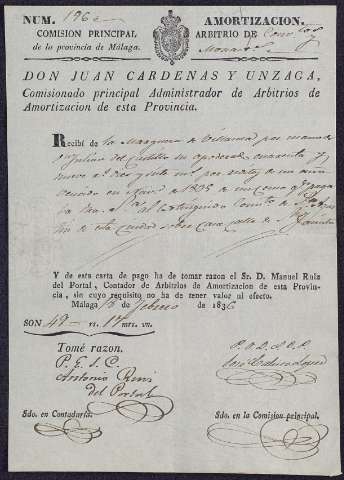 NUM. 196 AMORTIZACION.
COMISION PRINCIPAL ARBITRIO DE
de la provincia de Málaga.
DON JUAN CARDENAS Y UNZAGA,
Comisionado principal Administrador de Arbitrios de
Amortizacion de esta Provincia.
Recibí de la Marquesa de por mano de
Julian del Castillo su apoderado cuarenta y
nueve
vencido en de 1835 de un Censo que paga
ba al extinguido Convto de
tin de esta ciudad sobre Casa calle de
Y de esta carta de pago ha de tomar razon el Sr. D. Manuel Ruiz
del Portal, Contador de Arbitrios de Amortizacion de esta Provin-
cia, sin cuyo requisito no ha de tener valor al efecto.
Málaga de Febrero de 1836
SON 49 rs. 17 mrs. vn.
Tomé razon.
P. E. S. C.
Antonio Ruiz
del Portal
Sdo. en Contaduría. Sdo. en la Comision principal.